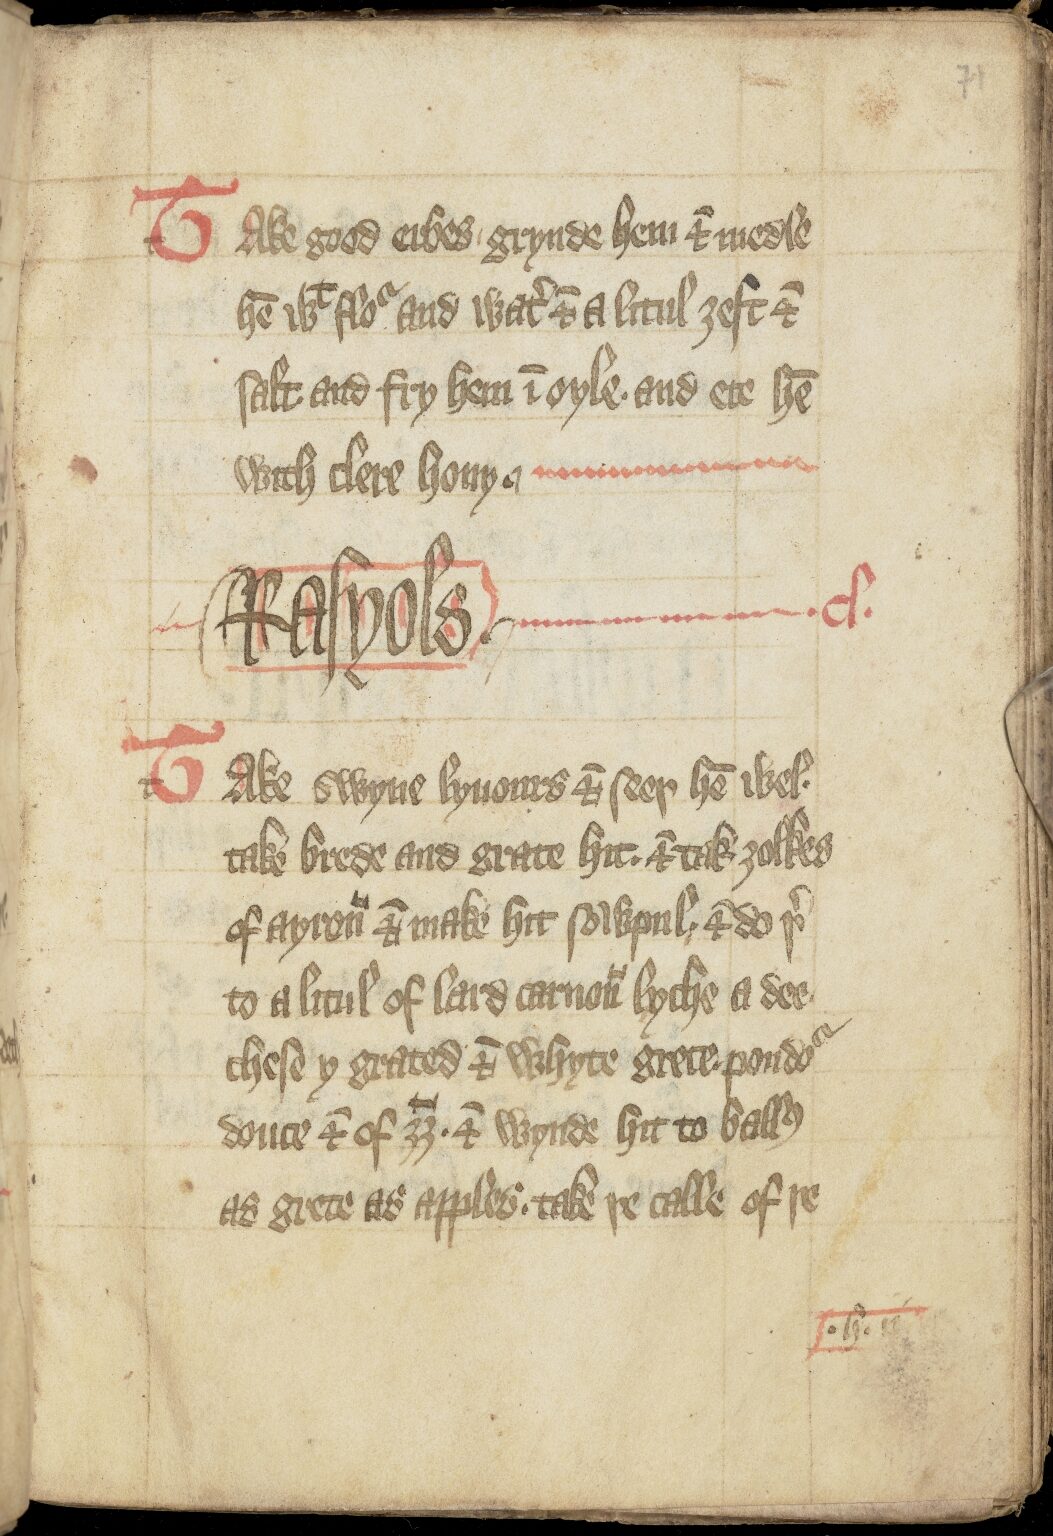 71
Take good erbes. grynde hem ⁊ medle
hē wᵗ floᵘʳ and watʾ ⁊ a litul ȝest ⁊
salt and fry hem ī oyle. and ete hē
with clere hony.
Rasyols. .cl.
Take swyne lyuours ⁊ seeþ hē wel.
take brede and grate hit. ⁊ tak ȝolkes
of ayren̄ ⁊ make hit sowpul. ⁊ do þʾ
to a litul of lard carnon̄ lyche a dee.
chese y grated ⁊ whyte grece. poudoᵘʳ
douce ⁊ of ȝȝ. ⁊ wynde hit to ballꝭ
as grete as apples. take þe calle of þe
.h. ii